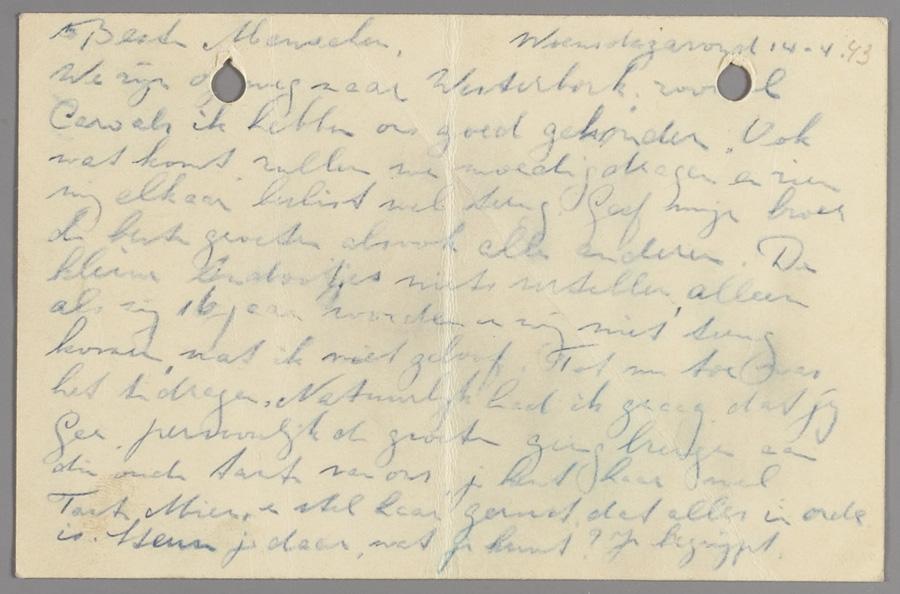 Beste Menschen, Woensdagavond 14-4.43
We zijn op weg naar Westerbork. zoowel
Caro als ik hebben ons goed gehouden. Ook
wat komt zullen we moedig dragen en zien
wij elkaar beslist wel terug. Geef mijn broer
de beste groeten alsook alle anderen. De
kleine niets vertellen, alleen
als zij 16 jaar worden en wij niet terug
komen, wat ik niet geloof. Tot nu toe was
het te dragen. Natuurlijk had ik graag dat jij
Gee. persoonlijk de groeten ging brengen aan
die oude tante van ons, je kent haar wel
Tante Mien, en stel haar gerust dat alles in orde
is. Steun je daar, wat je kunt? Je begrijpt.